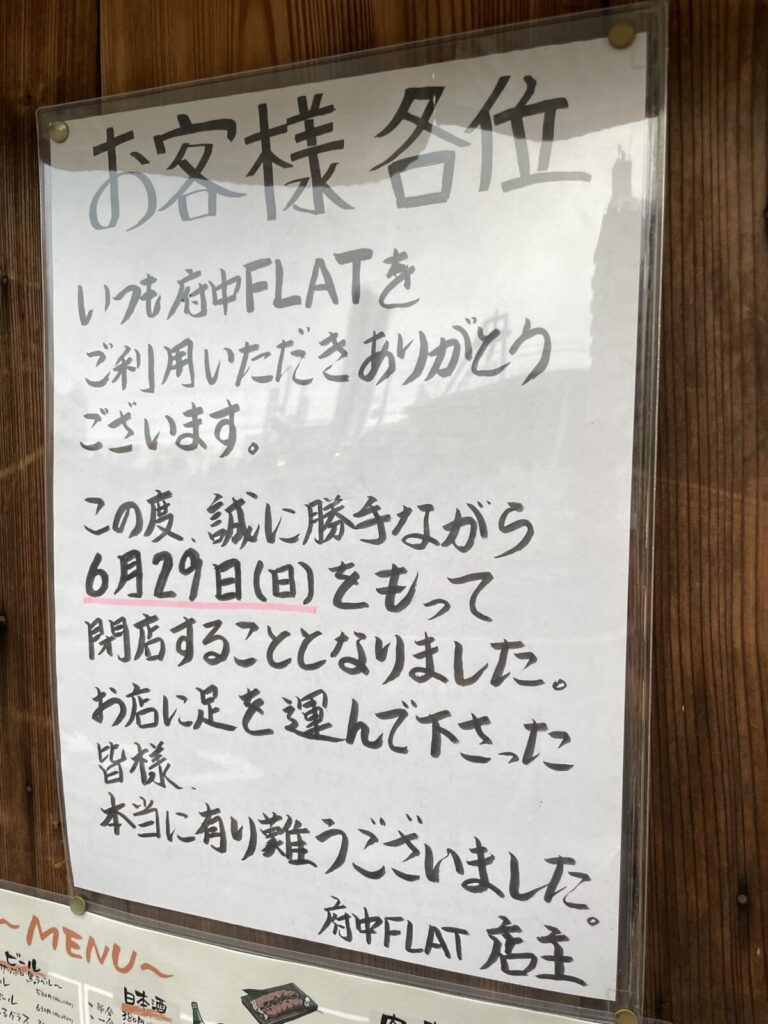 お客様各位
いつも府中FLATを
ご利用いただきありがとう
ございます。
この度、誠に勝手ながら
6月29日(日)をもって
閉店することとなりました。
お店に足を運んで下さった
皆様、
本当に有り難うございました。
府中FLAT 店主
〜MENU〜
ビール
日本酒